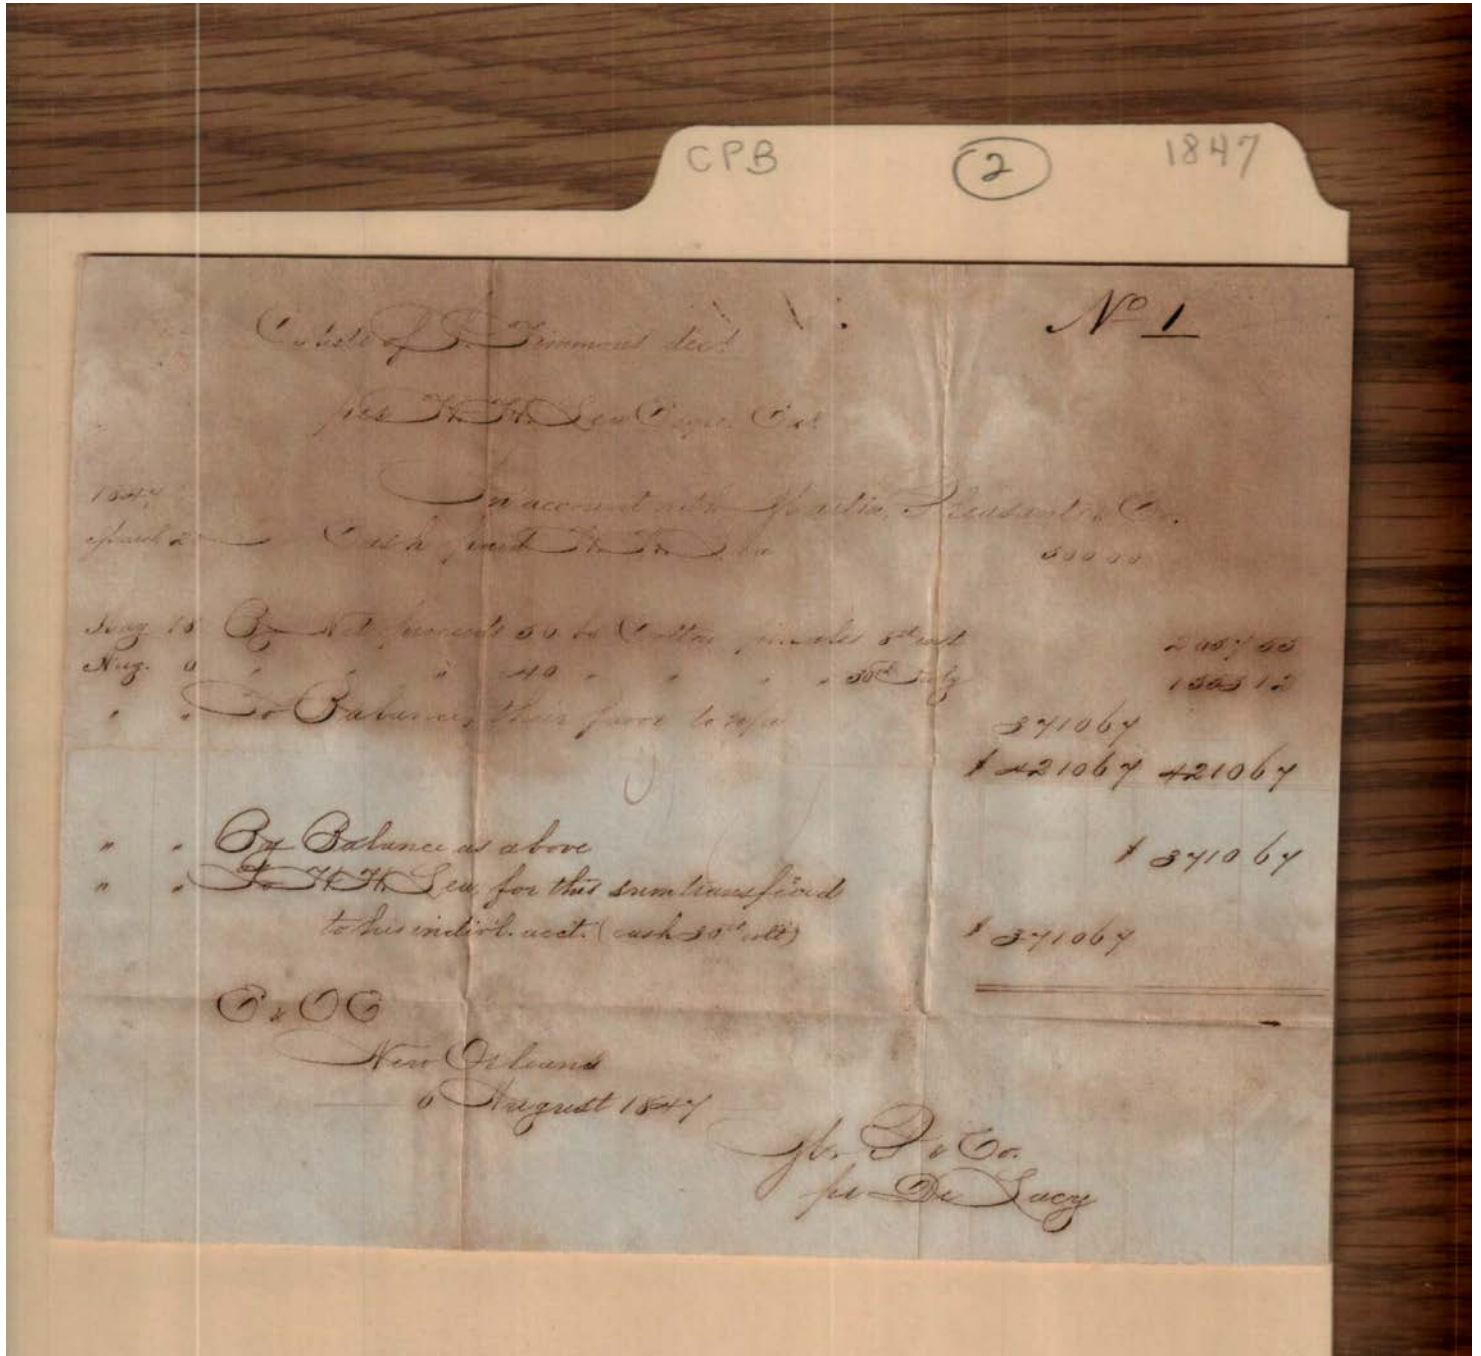 CPB 2 1847
No 1
Estate of S. Timmons decd
per H. H. Lea Exr.
1847 In account with Martin, Pleasants & Co.
March 2 Cash paid H. H. Lea 500 00
May 18 By Net proceeds 50 bs Cotton pr. sales 5th inst
Aug. 6 " " " 40 " " " " 30th July
" " To Balance, their favor to 3710 67
$ 4210 67 4210 67
" " By Balance as above $ 3710 67
" " To H H Lea, for this sum transferd
to his indivl. acct. (cash 30th ult) $ 3710 67
E & O E
New Orleans
6 August 1847
M. P & Co.
pr De Lacy